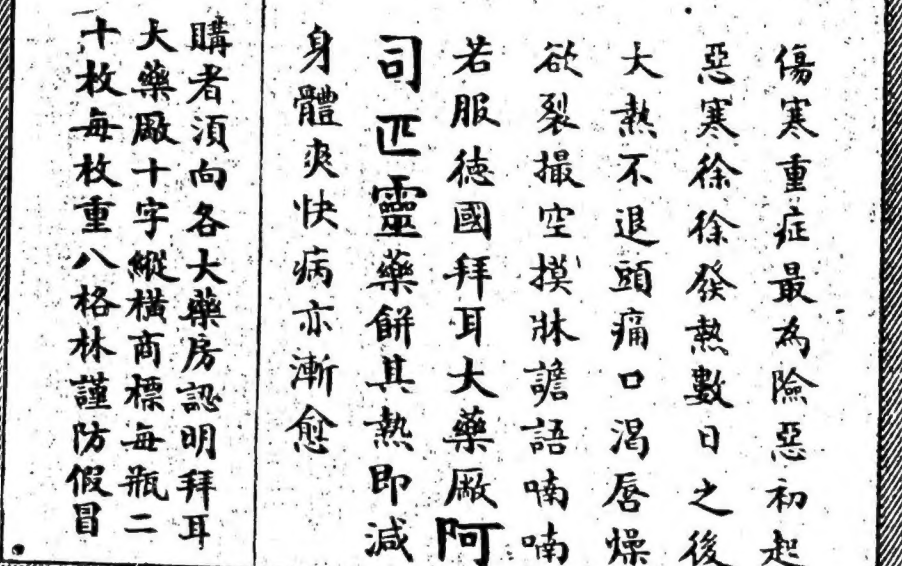 傷寒重症最為險惡初起
惡寒徐徐發熱數日之後
大熱不退頭痛口渴唇燥
欲裂撮空摸牀譫語喃喃
若服德國拜耳大藥厰阿
司匹靈藥餅其熱即減
身體爽快病亦漸愈
購者須向各大藥房認明拜耳
大藥厰十字縱橫商標每瓶二
十枚每枚重八格林謹防假冒